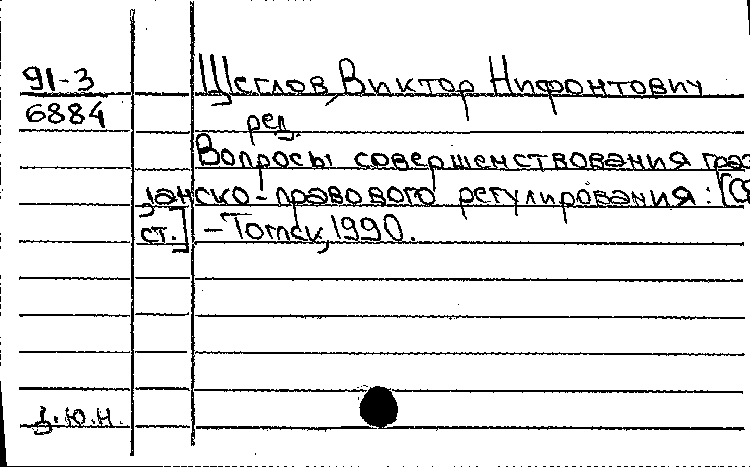 91-3 Щеглов, Виктор Нифонтович
6884 ред.
Вопросы совершенствования граж
данско-правового регулирования: [Сб
ст.] – Томск, 1990.
З.Ю.Н.